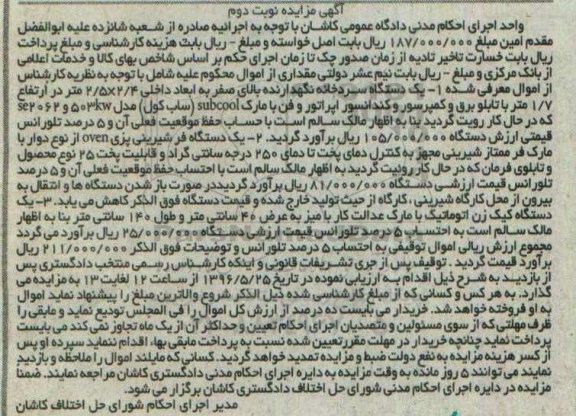 آگهی مزایده نوبت دوم
واحد اجرای احکام مدنی دادگاه عمومی کاشان با توجه به اجرائیه صادره از شعبه شانزده علیه ابوالفضل
مقدم امین مبلغ ۱۸۷/۰۰۰/۰۰۰ ریال بابت اصل خواسته و مبلغ - ریال بابت هزینه کارشناسی و مبلغ پرداخت
ریال بابت خسارت تاخیر تادیه از زمان صدور چک تا زمان اجرای حکم بر اساس شاخص بهای کالا و خدمات اعلامی
از بانک مرکزی و مبلغ - ریال بابت نیم عشر دولتی مقداری از اموال محکوم علیه شامل با توجه به نظریه کارشناس
از اموال معرفی شده ۱- یک دستگاه سردخانه نگهدارنده بالای صفر به ابعاد داخلی ۲/۵x۲/۴ متر در ارتفاع
۱/۷ متر با تابلو برق و کمپرسور و کندانسور اپراتور و فن با مارک subcool (ساب کول) مدل ۵۰۳kw و se۲۰۶۲
که در حال کار رویت گردید بنا به اظهار مالک سالم است با حساب حفظ موقعیت فعلی آن و ۵ درصد تلورانس
قیمتی ارزش دستگاه ۱۰۵/۰۰۰/۰۰۰ ریال برآورد گردید. ۲- یک دستگاه فر شیرینی پزی oven از نوع دوار با
مارک فر ممتاز شیرینی مجهز به کنترل دمای پخت تا دمای ۲۵۰ درجه سانتی گراد و قابلیت پخت ۲۵ نوع محصول
و تابلوی فرمان که در حال کار روئیت گردید به اظهار مالک سالم است با احتساب حفظ موقعیت فعلی آن و ۵ درصد
تلورانس قیمت ارزشی دستگاه ۸۱/۰۰۰/۰۰۰ ریال برآورد گردید در صورت باز شدن دستگاه ها و انتقال به
بیرون از محل کارگاه شیرینی ، کارگاه از حیث تولید خارج شده و قیمت دستگاه فوق الذکر کاهش می یابد. ۳- یک
دستگاه کیک زن اتوماتیک با مارک عدالت کار با میز به عرض ۴۰ سانتی متر و طول ۱۴۰ سانتی متر بنا به اظهار
مالک سالم است به احتساب ۵ درصد تلورانس قیمت ارزشی دستگاه ۲۵/۰۰۰/۰۰۰ ریال برآورد می گردد
مجموع ارزش ریالی اموال توقیفی به احتساب ۵ درصد تلورانس و توضیحات فوق الذکر ۲۱۱/۰۰۰/۰۰۰ ریال
برآورد قیمت گردید . توقیف پس از جری تشریفات قانونی و اینکه کارشناس رسمی منتخب دادگستری پس
از بازدید به شرح ذیل اقدام به ارزیابی نموده در تاریخ ۱۳۹۶/۵/۲۵ از ساعت ۱۲ لغایت ۱۳ به مزایده می
گذارد. به هر کس و کسانی که از مبلغ کارشناسی شده ذیل الذکر شروع و الاترین مبلغ را پیشنهاد نماید اموال
به او فروخته خواهد شد. خریدار می بایست ده درصد از ارزش کل اموال را فی المجلس تودیع نماید و مابقی را
ظرف مهلتی که از سوی مسئولین و متصدیان اجرای احکام تعیین و حداکثر آن از یک ماه تجاوز نمی کند می بایست
پرداخت نماید چنانچه خریدار در مهلت مقرر تعیین شده نسبت به پرداخت مابقی بها، اقدام ننماید سپرده او پس
از کسر هزینه مزایده به نفع دولت ضبط و مزایده تمدید خواهد گردید. کسانی که مایلند اموال را ملاحظه و بازدید
نمایند می توانند ۵ روز مانده به وقت مزایده به دایره اجرای احکام مدنی دادگستری کاشان مراجعه نمایند. ضمنا
مزایده در دایره اجرای احکام مدنی شورای حل اختلاف دادگستری کاشان برگزار می شود.
مدیر اجرای احکام شورای حل اختلاف کاشان